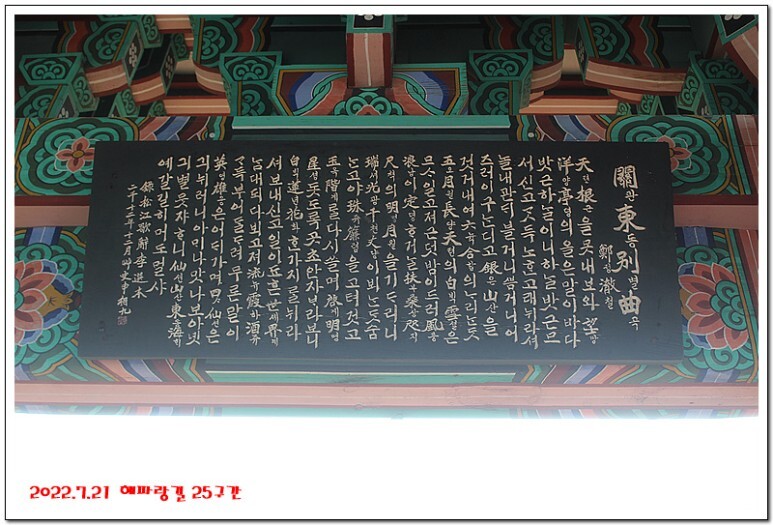 關관東동別별曲곡
鄭뎡澈철
天텬根근을못내보와望망
洋양亭뎡의올은말이바다
밧근하ᄂᆞᆯ이니하ᄂᆞᆯ밧근므
서신고ᄀᆞᆺ득노ᄒᆞᆫ고래뉘라셔
놀내관ᄃᆡ블거니ᄲᅳᆷ거니어
즈러이구ᄂᆞᆫ디고銀은山산을
것거내여六뉵合합의ᄂᆞ리ᄂᆞᆫᄃᆞᆺ
五오月월長댱天텬의白ᄇᆡᆨ雪셜은
므ᄉᆞ일고져근덧밤이드러風풍
浪낭이定뎡ᄒᆞ거ᄂᆞᆯ扶부桑상咫지
尺쳑의明명月월을기ᄃᆞ리니
瑞셔光광千쳔丈댱이뵈ᄂᆞᆫᄃᆞᆺ숨
ᄂᆞᆫ고야珠쥬簾렴을고텨것고
玉옥階계ᄅᆞᆯ다시쓸며啓계明명
星셩돗도록곳초안자ᄇᆞ라보니
白ᄇᆡᆨ蓮년花화ᄒᆞᆫ가지ᄅᆞᆯ뉘라
셔보내신고일이됴흔世셰界계
ᄂᆞᆷ대되다뵈고져流뉴霞하酒쥬
ᄀᆞ득부어ᄃᆞᆯᄃᆞ려무론말이
英영雄웅은어ᄃᆡ가며四ᄉᆞ仙션은
긔뉘러니아ᄆᆡ나맛나보아녯
긔별뭇쟈ᄒᆞ니仙션山산東동海ᄒᆡ
예갈길히머도멀샤
錄松江歌辭李選本
二千十二年十二月
2022.7.21 해파랑길 25구간